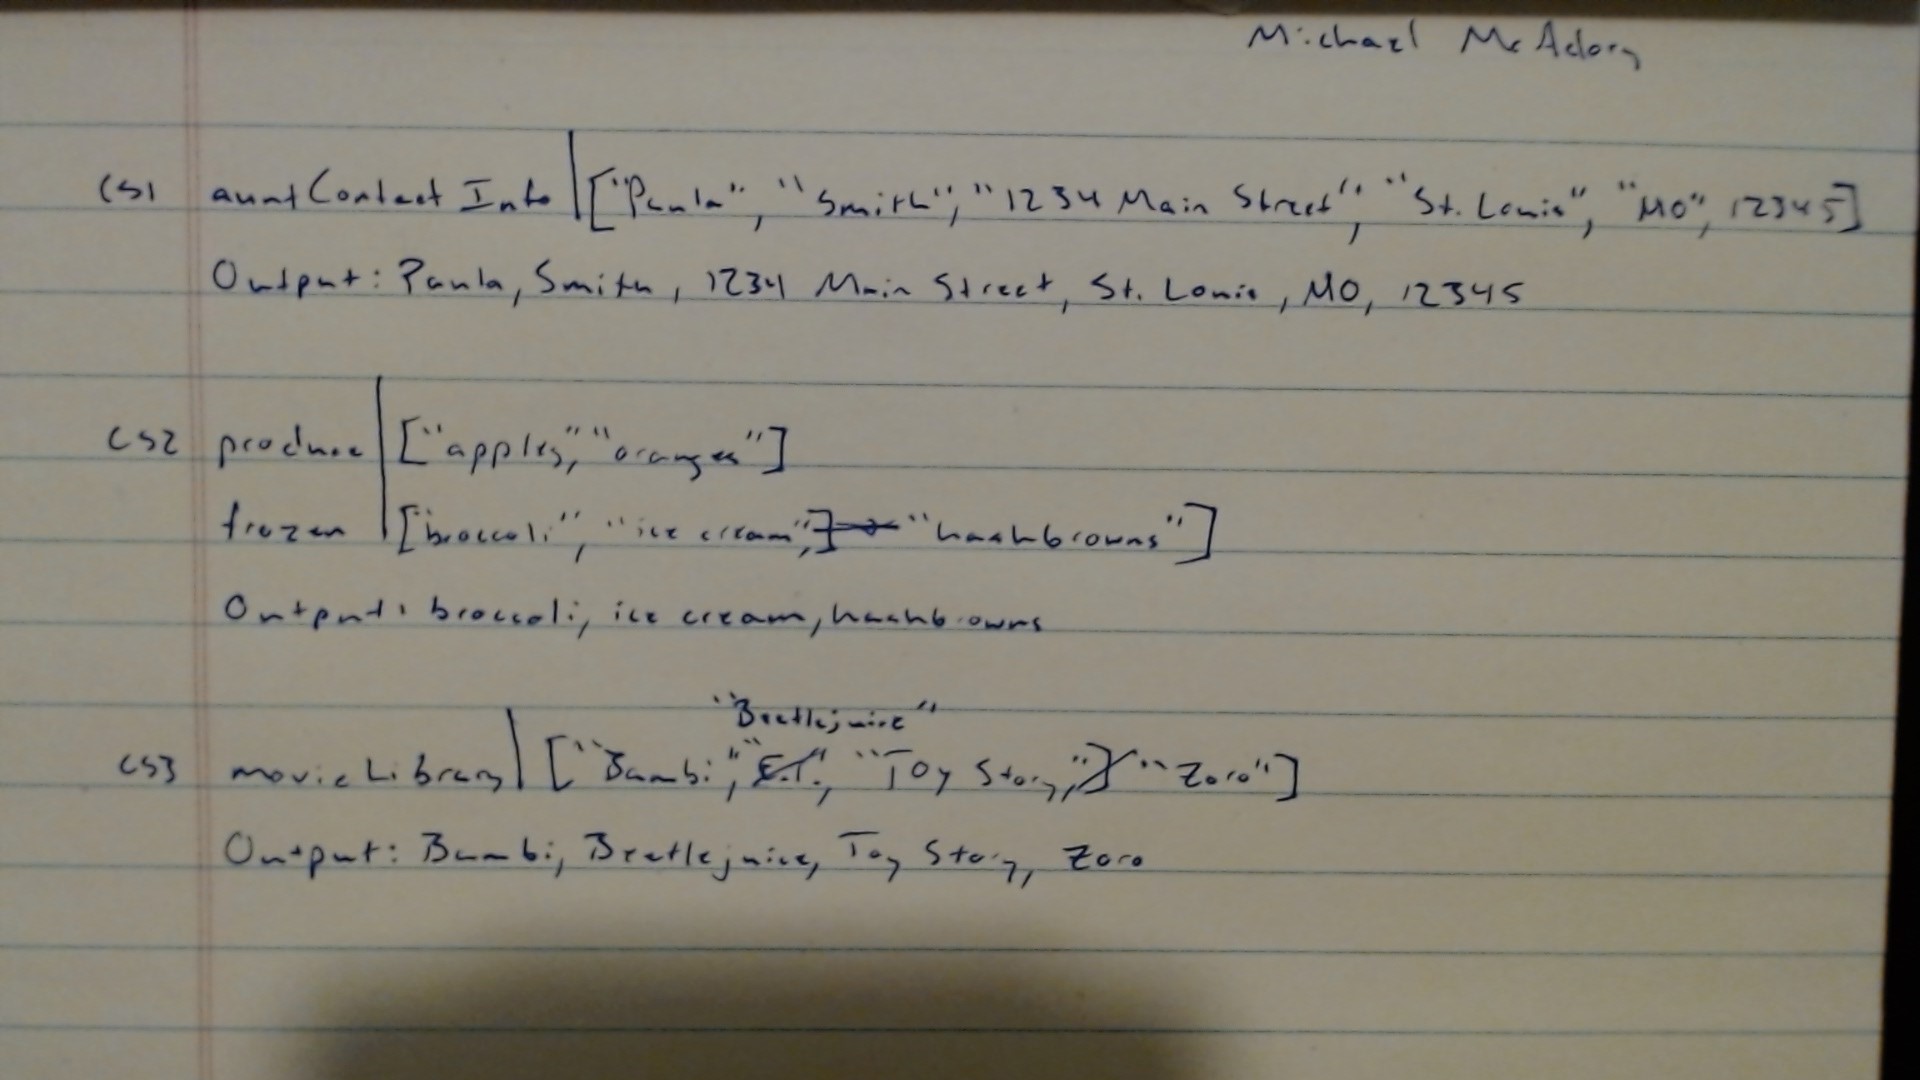 Michael McAdory
CS1 auntContactInfo | ["Paula", "Smith", "1234 Main Street", "St. Louis", "MO", 12345]
Output: Paula, Smith, 1234 Main Street, St. Louis, MO, 12345
CS2 produce | ["apples," "oranges"]
frozen | ["broccoli", "ice cream",] "hashbrowns"]
Output: broccoli, ice cream, hashbrowns
"Beetlejuice"
CS3 movieLibrary | ["Bambi", "E.T.", "Toy Story,"] "Zoro"]
Output: Bambi, Beetlejuice, Toy Story, Zoro